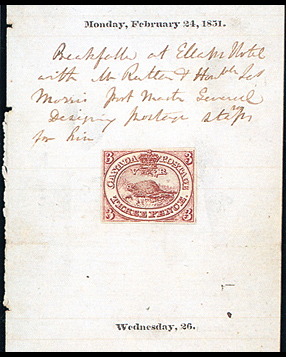 Monday, February 24, 1851.
Breakfast at Ellahs Hotel
with Mr Rutten & Honble Jas
Morris Post Master General
Designing postage stamps
for him
3 3
CANADA POSTAGE
V R
THREE PENCE
3 3
Wednesday, 26.